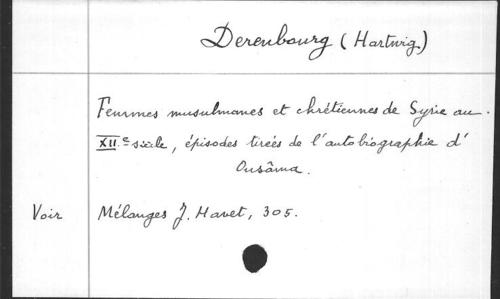 Derenbourg (Hartwig)
Femmes musulmanes et chrétiennes de Syrie au
XII.e siècle, épisodes tirées de l'autobiographie d'
Ousâma.
Voir Mélanges J. Havet, 305.